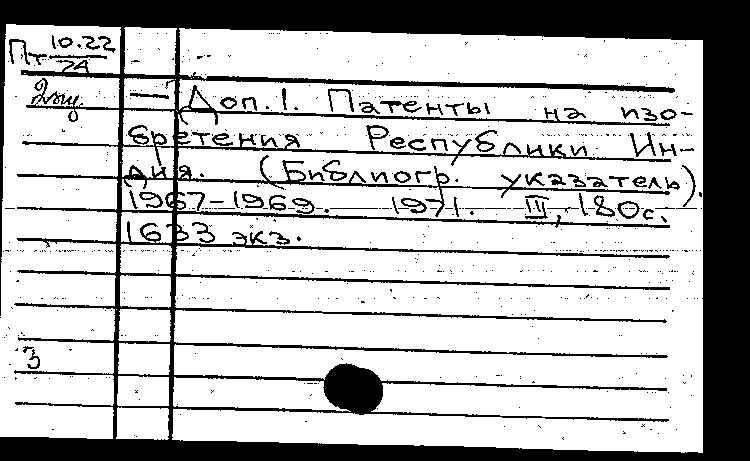 Пт 10.22
24
2экз. — Доп. 1. Патенты на изо-
бретения Республики Ин-
дия. (Библиогр. указатель).
1967-1969. 1971. III, 180с.
1633 экз.
3